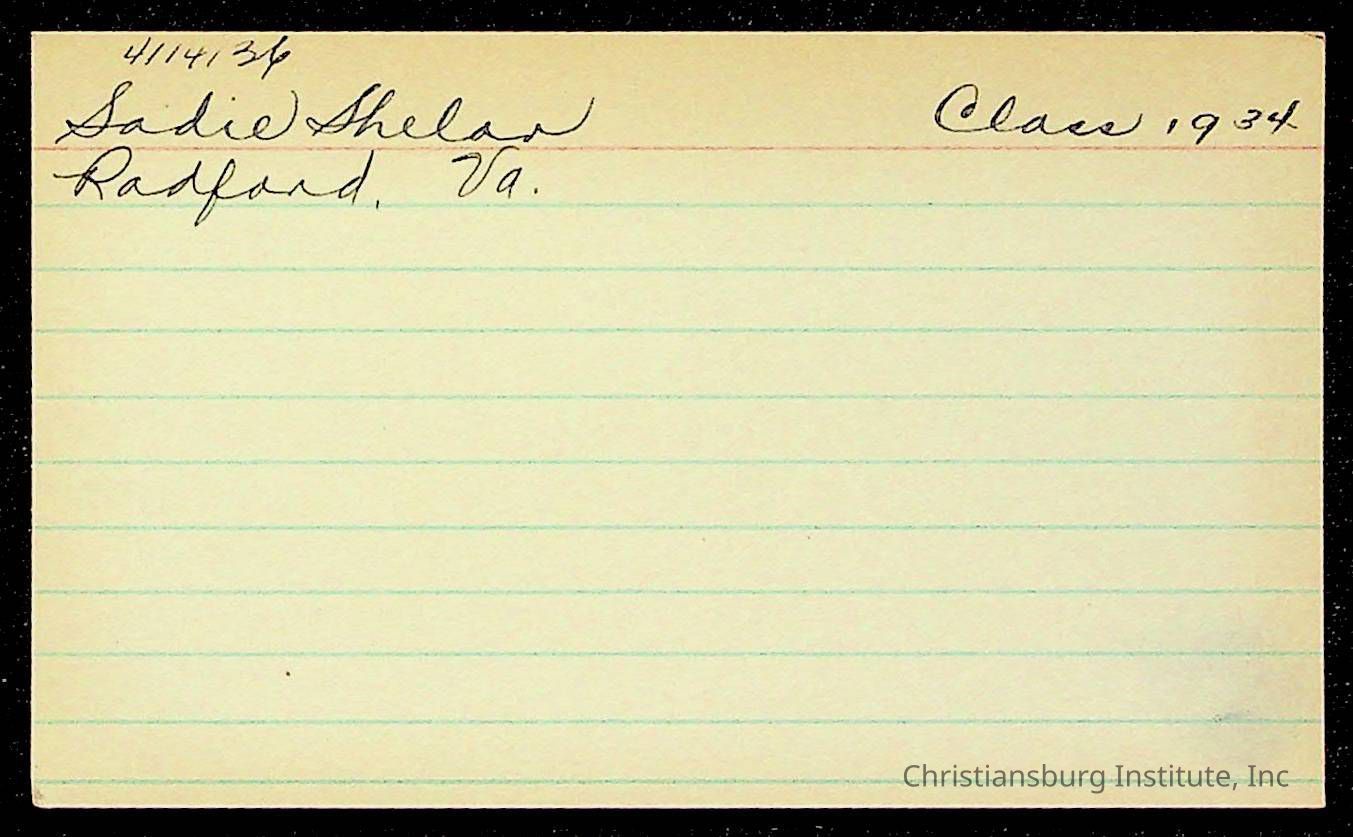 4/14/36
Sadie Shelor
Class 1934
Radford, Va.
Christiansburg Institute, Inc